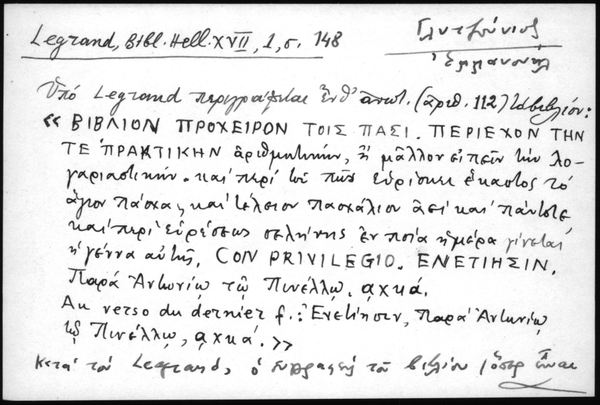 Legrand, Bibl. Hell. XVII, 1, σ. 148
Γλυτζούνιος
Ἐμμανουήλ
Ὑπό Legrand περιγράφεται ἐνθ' ἀνωτ. (ἀριθ. 112) τό βιβλίον:
« ΒΙΒΛΙΟΝ ΠΡΟΧΕΙΡΟΝ ΤΟΙΣ ΠΑΣΙ. ΠΕΡΙΕΧΟΝ ΤΗΝ
ΤΕ ΠΡΑΚΤΙΚΗΝ ἀριθμητικήν, ἢ μᾶλλον εἰπεῖν τήν λο-
γαριαστικήν. καί περί τοῦ πῶς εὑρίσκει ἕκαστος τό
ἅγιον πάσχα, καί τέλειον πασχάλιον ἀεί καί πάντοτε
καί περί εὑρέσεως σελήνης ἐν ποίᾳ ἡμέρᾳ γίνεται
ἡ γέννα αὐτῆς, CON PRIVILEGIO. ΕΝΕΤΙΗΣΙΝ.
Παρά Ἀντωνίῳ τῷ Πινέλλῳ. αχκά.
Au verso du dernier f.: Ἐνετίησιν, Παρά Ἀντωνίῳ
τῷ Πινέλλῳ, αχκά. »
Κατά τόν Legrand, ὁ συγγραφεύς τοῦ βιβλίου ὅστις εἶναι